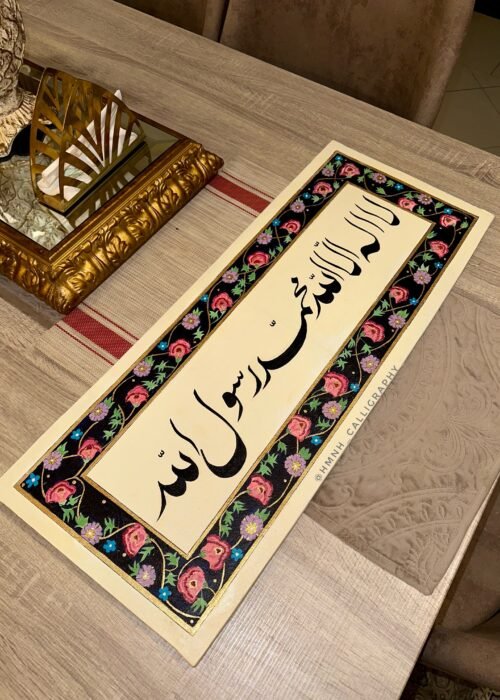 لا اله الا الله محمد رسول الله
@HMNH_CALLIGRAPHY